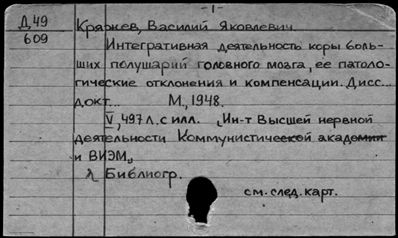 -1-
Д.49
609
Кряжев, Василий Яковлевич
Интегративная деятельность коры боль-
ших полушарий головного мозга, ее патоло-
гические отклонения и компенсации. Дисс...
докт... М., 1948.
V, 497 л. с илл. „Ин-т Высшей нервной
деятельности Коммунистической академии
и ВИЭМ„
Я Библиогр.
см. след. карт.